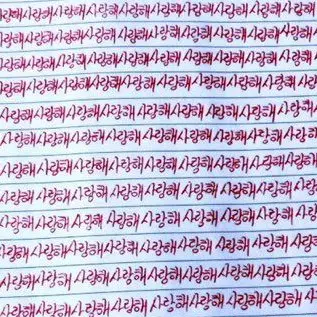 사랑해사랑해사랑해사랑해사랑해사랑해사랑해사랑해
사랑해사랑해사랑해사랑해사랑해사랑해사랑해사랑해
사랑해사랑해사랑해사랑해사랑해사랑해사랑해사랑해
사랑해사랑해사랑해사랑해사랑해사랑해사랑해사랑해
사랑해 사랑해 사랑해 사랑해 사랑해 사랑해 사랑해 사랑해 사랑해
사랑해 사랑해 사랑해 사랑해 사랑해 사랑해 사랑해 사랑해 사랑해
사랑해 사랑해 사랑해 사랑해 사랑해 사랑해 사랑해 사랑해 사랑해
사랑해 사랑해 사랑해 사랑해 사랑해 사랑해 사랑해 사랑해 사랑해
사랑해 사랑해 사랑해 사랑해 사랑해 사랑해 사랑해 사랑해 사랑해
사랑해 사랑해 사랑해 사랑해 사랑해 사랑해 사랑해 사랑해
사랑해 사랑해 사랑해 사랑해 사랑해 사랑해 사랑해 사랑해
사랑해 사랑해 사랑해 사랑해 사랑해 사랑해 사랑해 사랑해 사